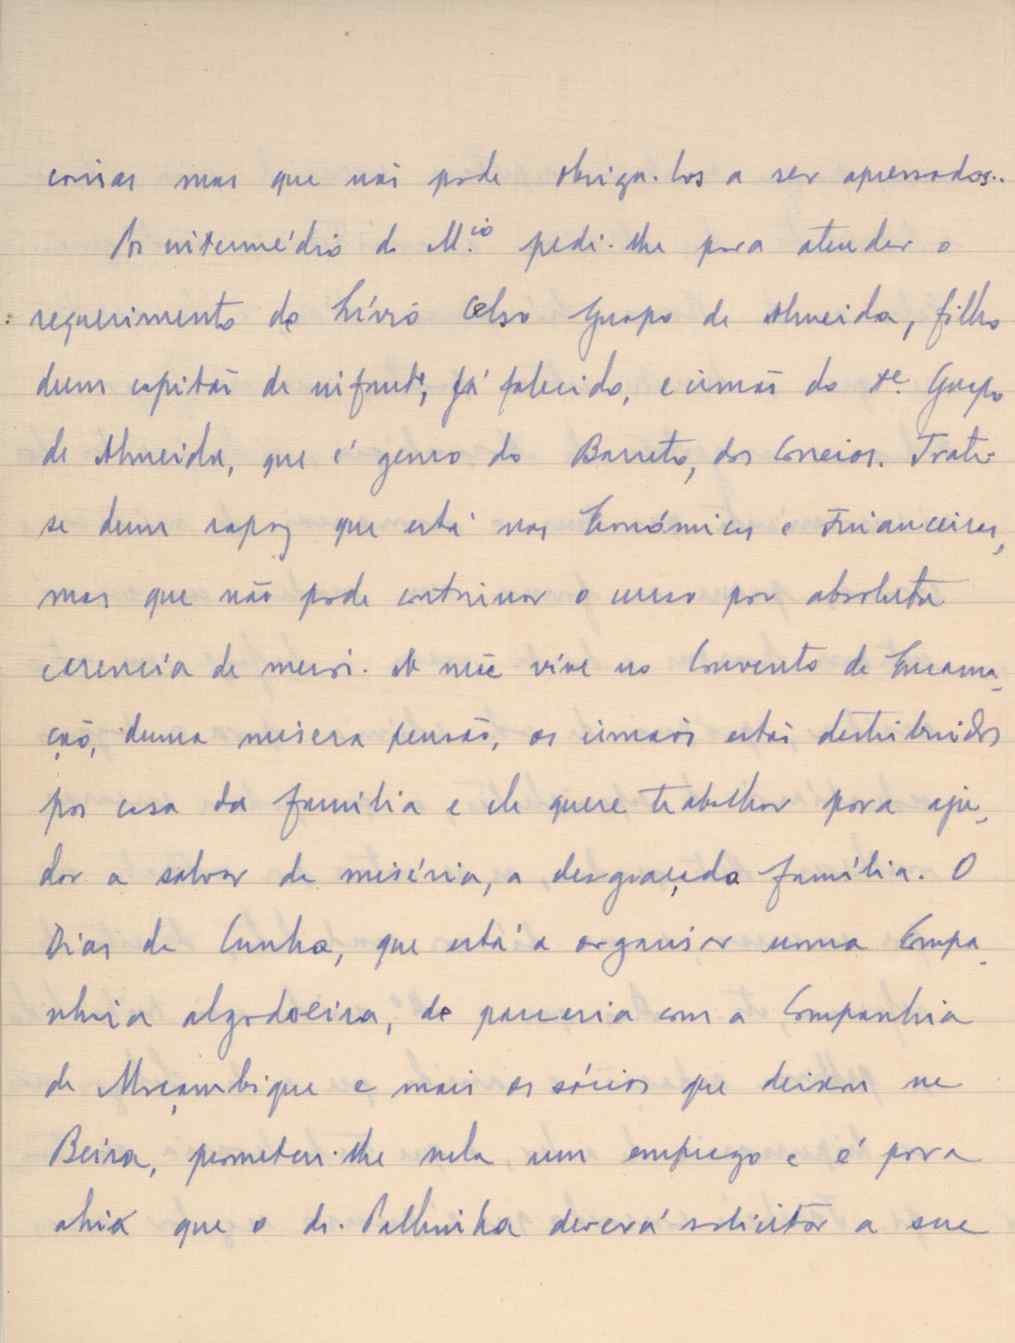 coisas mas que não pode obriga-los a ser apressados..
Por intermédio do M.cio pedi-lhe para atender o
requerimento do Lívio Celso Guapo de Almeida, filho
dum capitão de infant.ª, já falecido, e irmão do te. Guapo
de Almeida, que é genro do Barreto, dos Correios. Trata-
se dum rapaz que está nas Económicas e Financeiras,
mas que não pode continuar o curso por absoluta
carencia de meios. A mãe vive no Convento de Encarna-
ção, duma misera pensão, os irmãos estão destribuidos
por casa da família e ele quere trabalhar para aju-
dar a salvar da miséria, a desgraçada família. O
Dias da Cunha, que está a organisar uma Compa-
nhia algodoeira, de parceria com a Companhia
de Moçambique e mais os sócios que deixou na
Beira, prometeu-lhe nela um emprego e é para
ahia que o dr. Palhinha deverá solicitar a sua